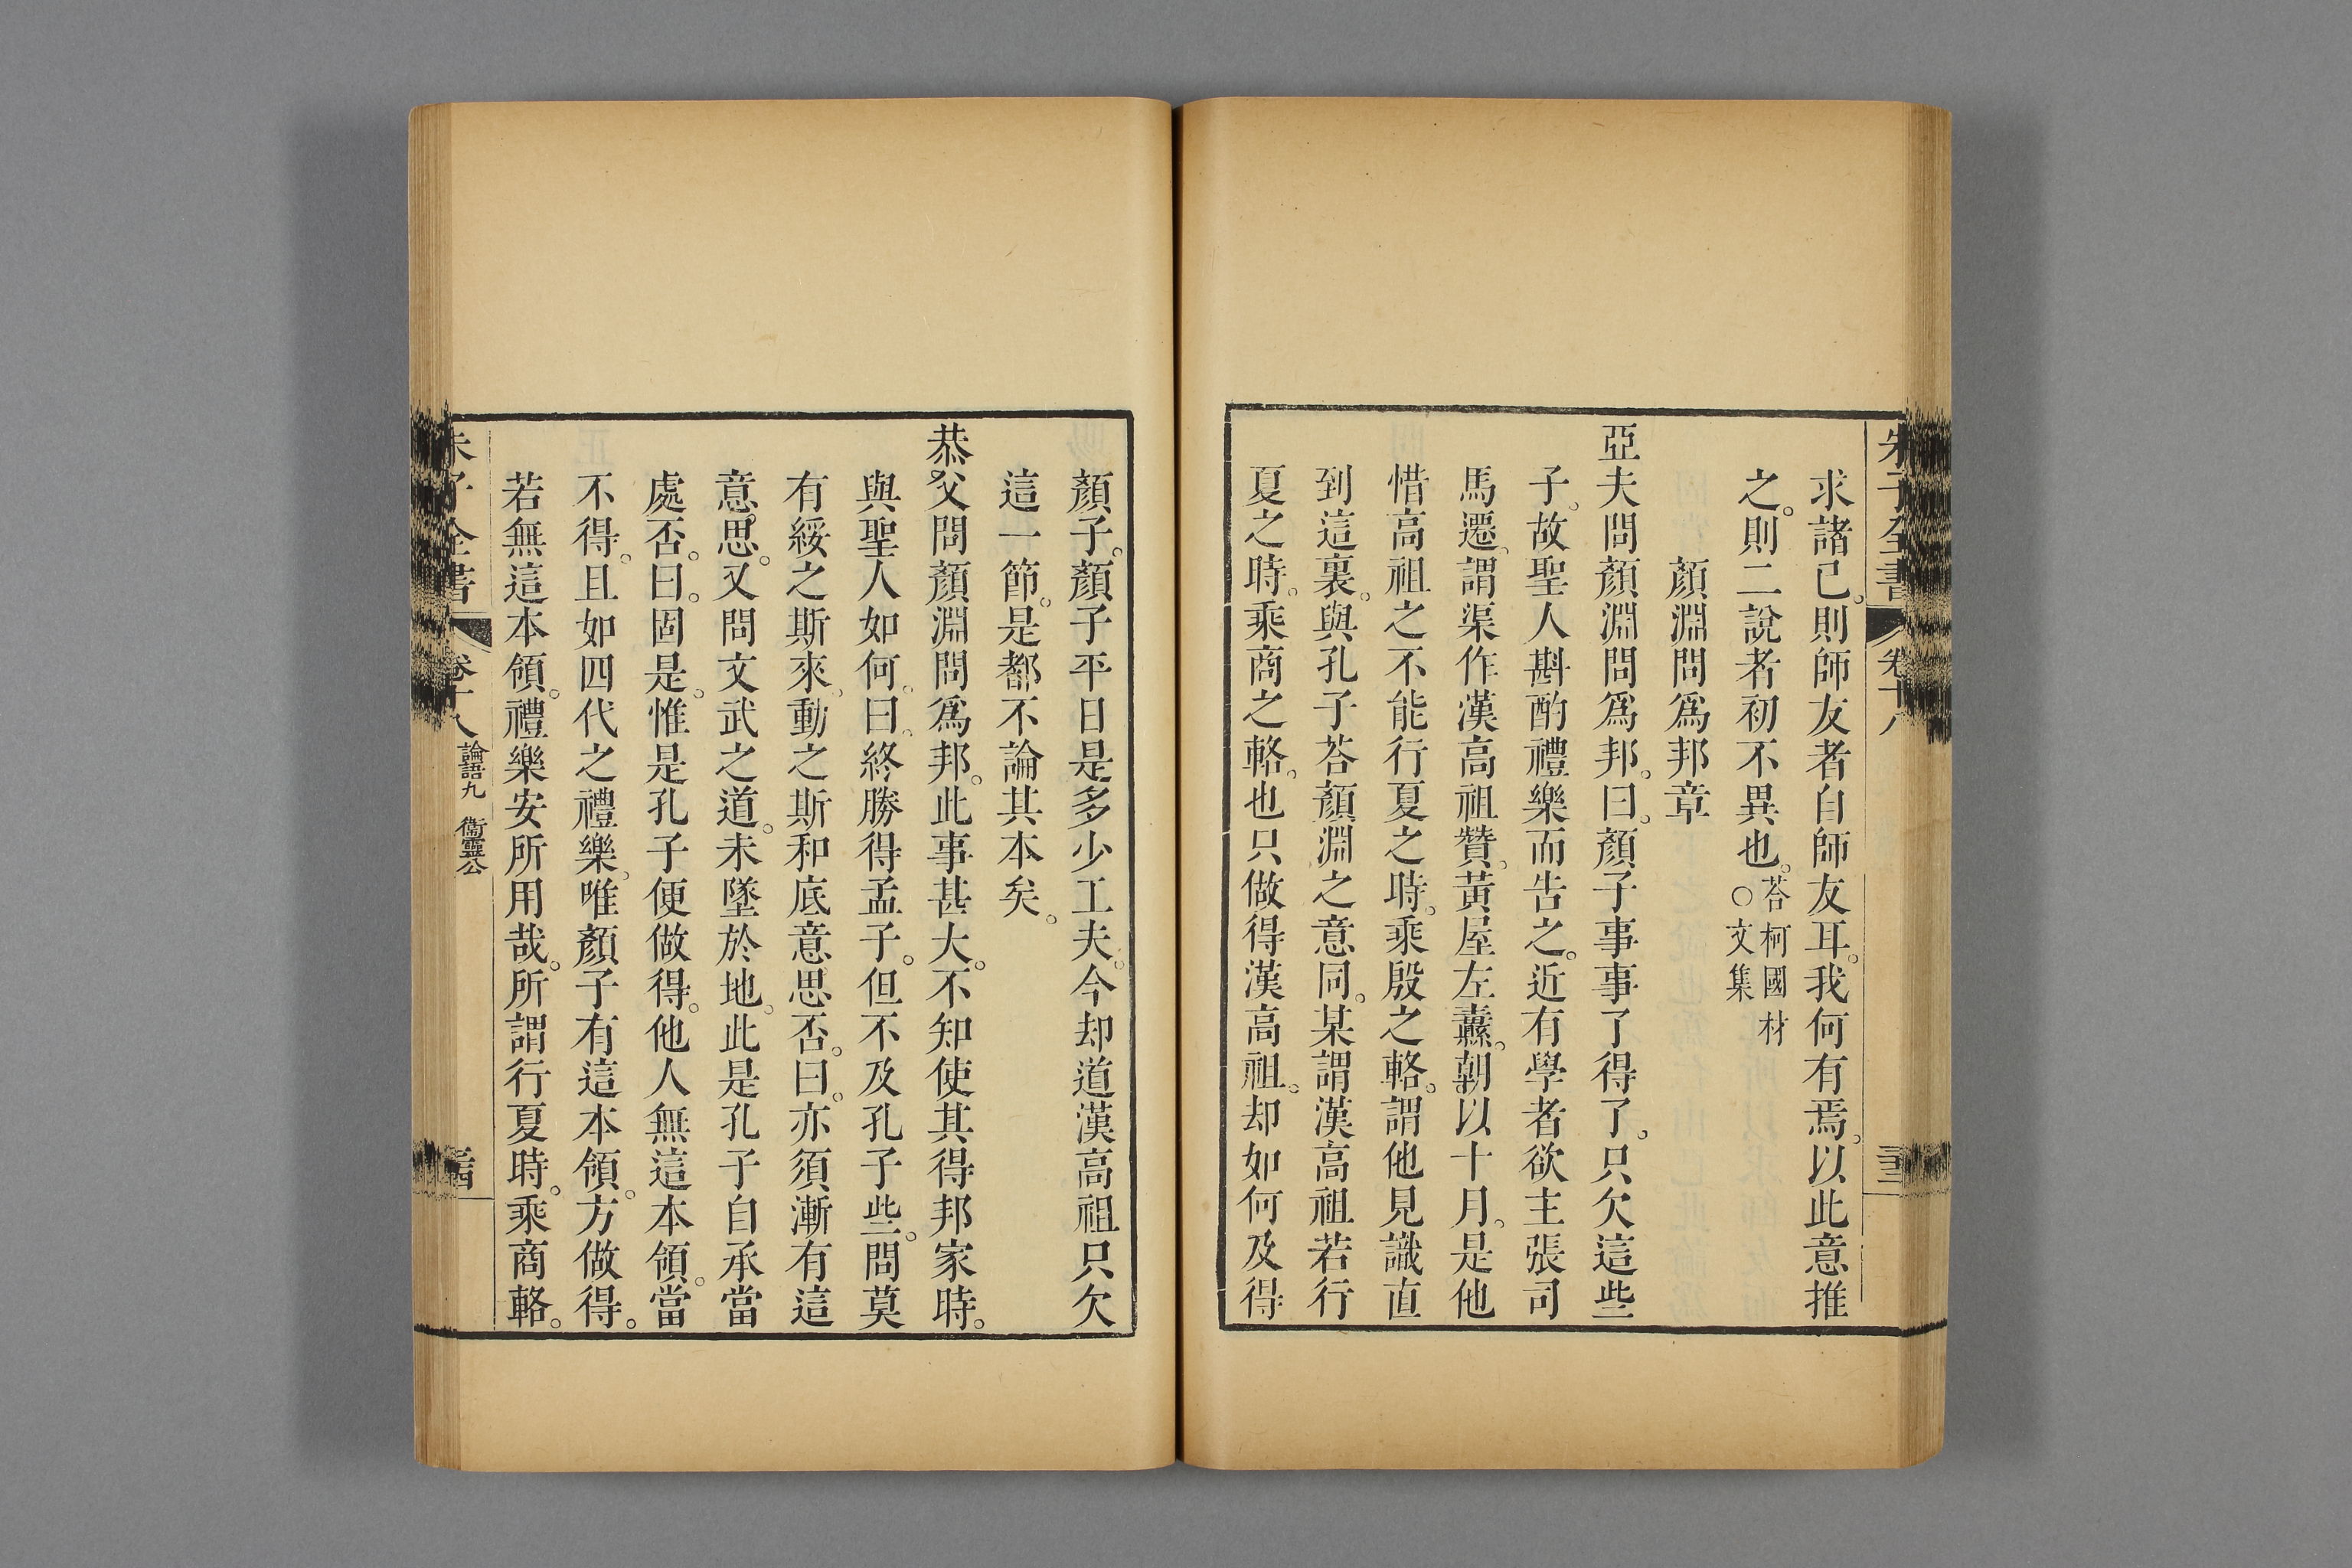 朱子全書 卷十八
求諸己。則師友者自師友耳。我何有焉。以此意推
之。則二說者初不異也。荅柯國材
○文集
顏淵問爲邦章
亞夫問顏淵問爲邦。曰。顏子事事了得了。只欠這些
子。故聖人斟酌禮樂而告之。近有學者欲主張司
馬遷。謂渠作漢高祖贊。黃屋左纛。朝以十月。是他
惜高祖之不能行夏之時。乘殷之輅。謂他見識直
到這裏。與孔子荅顏淵之意同。某謂漢高祖若行
夏之時。乘商之輅。也只做得漢高祖。却如何及得
顏子。顏子平日是多少工夫。今却道漢高祖只欠
這一節。是都不論其本矣。
恭父問顏淵問爲邦。此事甚大。不知使其得邦家時。
與聖人如何。曰。終勝得孟子。但不及孔子些。問莫
有綏之斯來。動之斯和底意思否。曰。亦須漸有這
意思。又問文武之道。未墜於地。此是孔子自承當
處否。曰。固是。惟是孔子便做得。他人無這本領。當
不得。且如四代之禮樂。唯顏子有這本領。方做得。
若無這本領。禮樂安所用哉。所謂行夏時。乘商輅。
朱子全書 卷十八 論語九 衞靈公